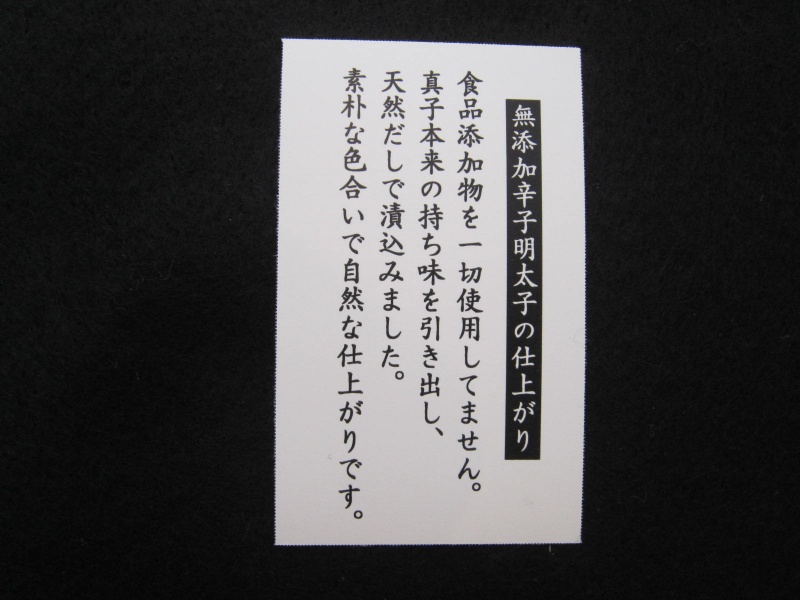 無添加辛子明太子の仕上がり
食品添加物を一切使用してません。
真子本来の持ち味を引き出し、
天然だしで漬込みました。
素朴な色合いで自然な仕上がりです。